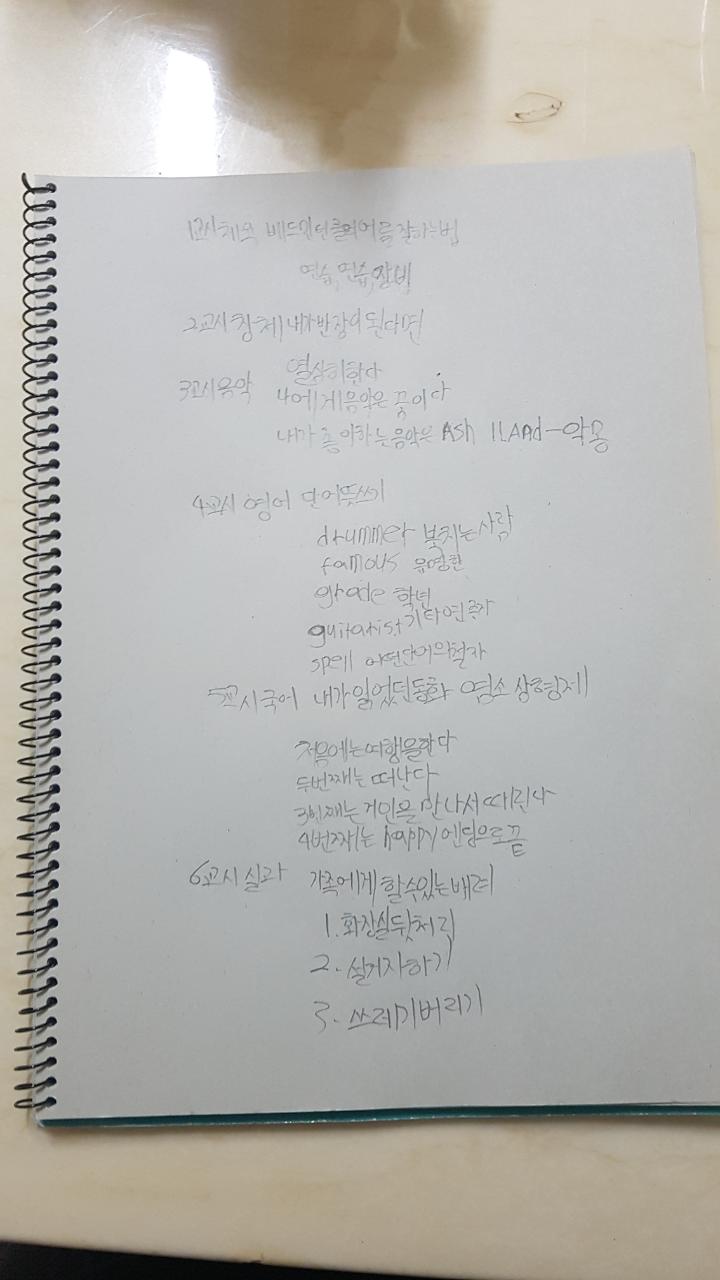 1교시 체육 배드민턴 클리어를 잘하는법
연습, 연습, 장비
2교시 창체 내가 반장이 된다면
열심히한다
3교시 음악 나에게 음악은 꿈이다
내가 좋아하는 음악은 ASh ILANd-악몽
4교시 영어 단어뜻쓰기
drummer 북치는 사람
famous 유명한
grade 학년
guitarist 기타연주가
spell 어떤단어의철자
5교시 국어 내가 읽었던동화 염소 삼형제
처음에는여행을한다
두번째는 떠난다
3번째는 거인을 만나서 때린다
4번째는 happy엔딩으로끝
6교시 실과 가족에게 할수있는배려
1. 화장실뒷처리
2. 설거지하기
3. 쓰레기버리기